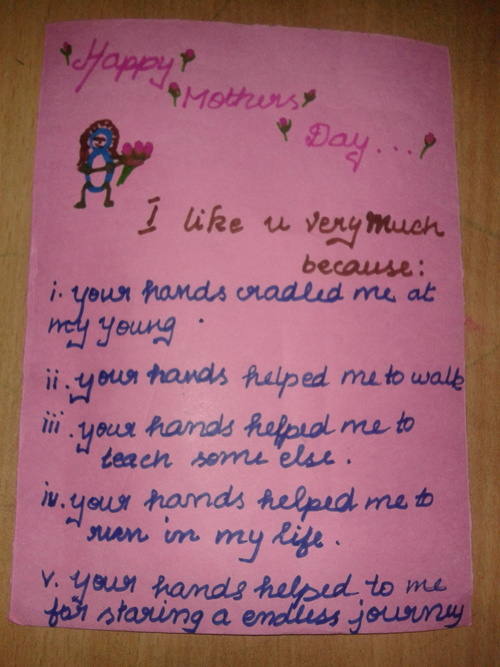 Happy
Mothers
Day...
I like u very much
because:
i. your hands cradled me at
my young.
ii. your hands helped me to walk
iii. your hands helped me to
teach some else.
iv. your hands helped me to
run in my life.
v. your hands helped to me
for staring a endless journey